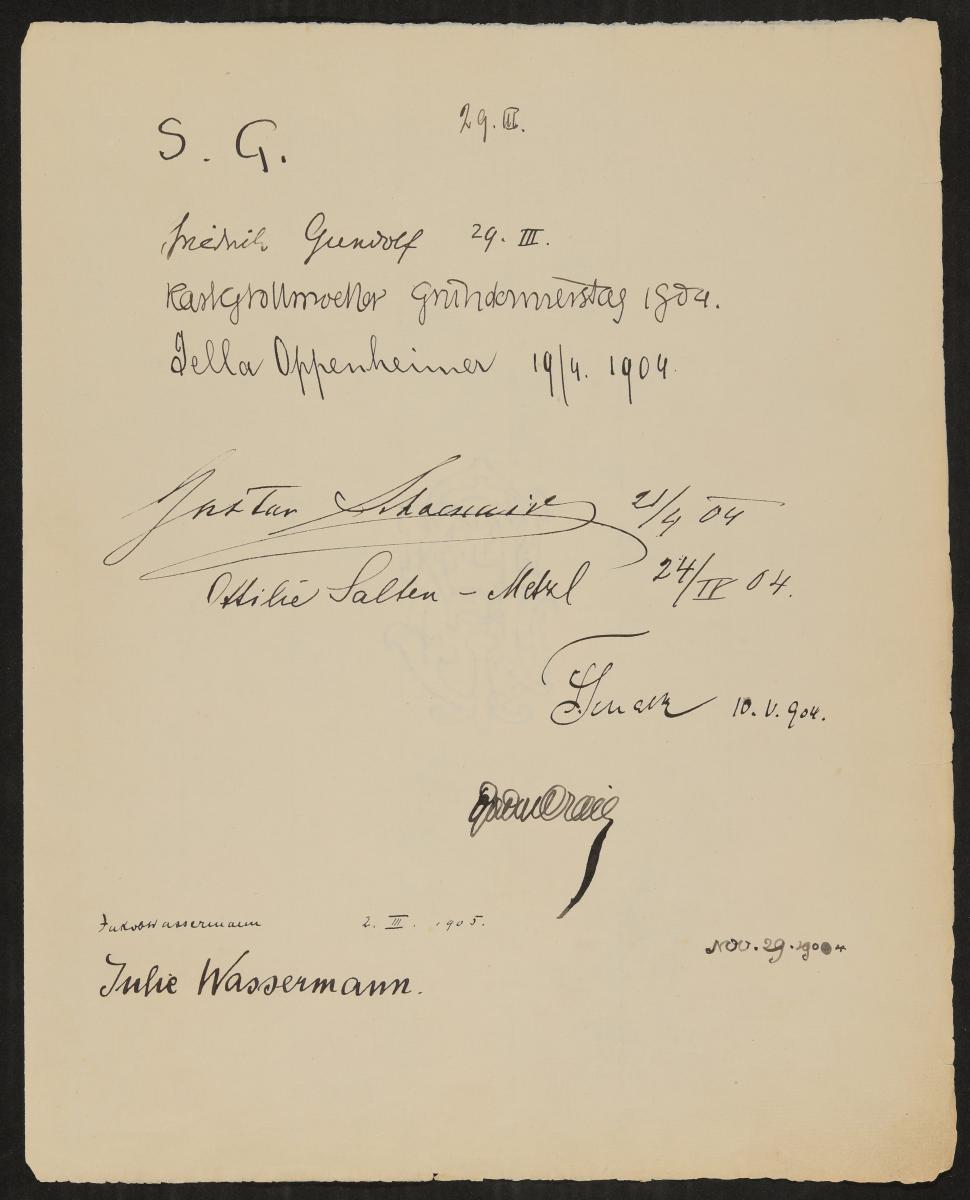 S. G. 29. III.
Friedrich Gundolf 29. III.
Karl Gustav Vollmoeller Gründonnerstag 1904.
Jella Oppenheimer 19/4. 1904.
Gustav 21/4 04
Ottilie Salten – Metzl 24/IV 04.
10. V. 904.
Gordon Craig
Jakob Wassermann 2. III. 1905.
Nov. 29. 1904
Julie Wassermann.